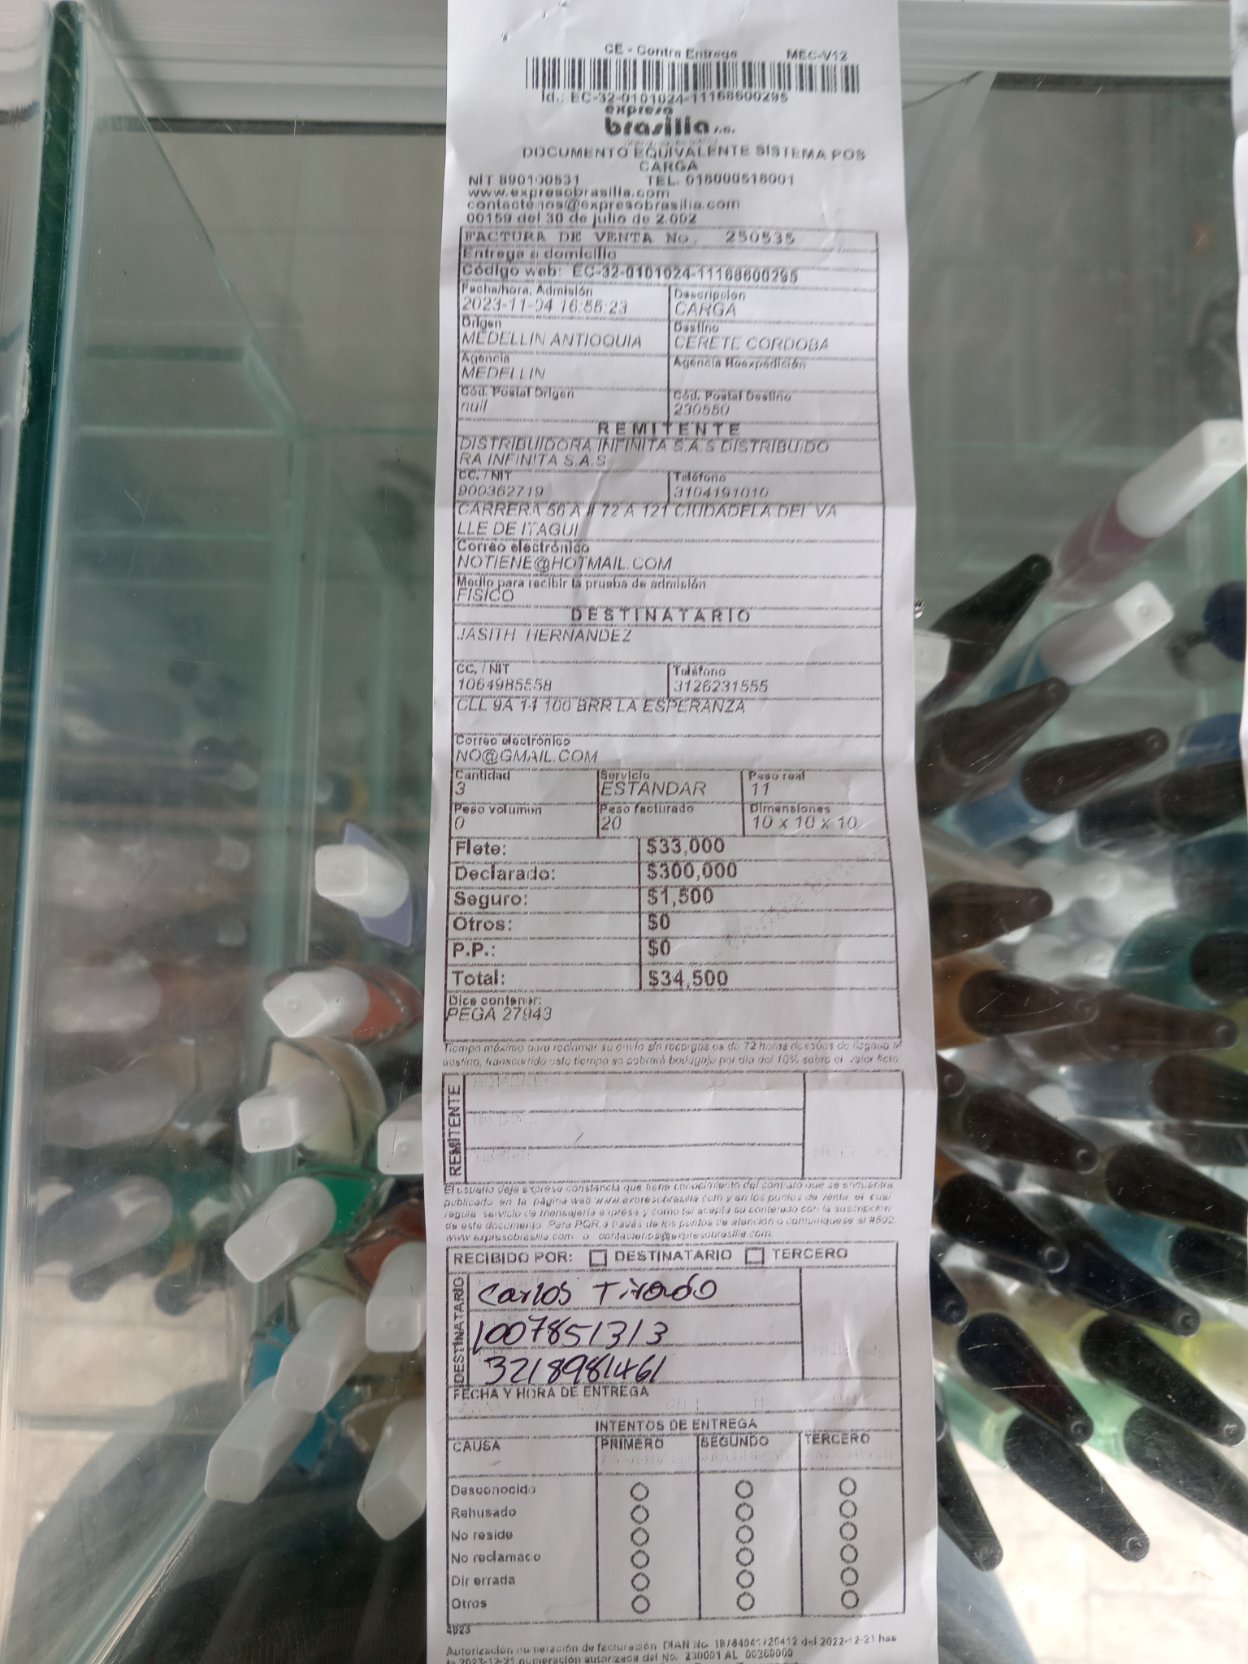 CE - Contra Entrega MEC-V12
Id.: EC-32-0101024-11168600295
expreso
brasilia s.a.
DOCUMENTO EQUIVALENTE SISTEMA POS
CARGA
NIT 890100531 TEL. 018000518001
www.expresobrasilia.com
contactenos@expresobrasilia.com
00159 del 30 de julio de 2.002
FACTURA DE VENTA No. 250535
Entrega a domicilio
Código web: EC-32-0101024-11168600295
Fecha/hora, Admisión Descripción
2023-11-04 16:56:23 CARGA
Origen Destino
MEDELLIN ANTIOQUIA CERETE CORDOBA
Agencia Agencia Reexpedición
MEDELLIN
Cód. Postal Origen Cód. Postal Destino
null 230550
REMITENTE
DISTRIBUIDORA INFINITA S.A.S DISTRIBUIDO
RA INFINITA S.A.S
CC. / NIT Teléfono
900362719 3104191010
CARRERA 56 A # 72 A 121 CIUDADELA DEL VA
LLE DE ITAGUI
Correo electrónico
NOTIENE@HOTMAIL.COM
Medio para recibir la prueba de admisión
FISICO
DESTINATARIO
JASITH HERNANDEZ
CC. / NIT Teléfono
1064985558 3126231555
CLL 9A 14 100 BRR LA ESPERANZA
Correo electrónico
NO@GMAIL.COM
Cantidad Servicio Peso real
3 ESTANDAR 11
Peso volumen Peso facturado Dimensiones
0 20 10 x 10 x 10
Flete: $33,000
Declarado: $300,000
Seguro: $1,500
Otros: $0
P.P.: $0
Total: $34,500
Dice contener:
PEGA 27943
Tiempo máximo para reclamar su envío sin recargos es de 72 horas después de llegada al
destino, transcurrido este tiempo se cobrará bodegaje por día del 10% sobre el valor flete
REMITENTE
El usuario deja expresa constancia que tiene conocimiento del contrato que se encuentra
publicado en la página web www.expresobrasilia.com y en los puntos de venta el cual
regula servicio de mensajería expresa y como tal acepta su contenido con la suscripción
de este documento. Para PQR, a través de los puntos de atención o comuníquese al #502
www.expresobrasilia.com o contactenos@expresobrasilia.com.
RECIBIDO POR: DESTINATARIO TERCERO
DESTINATARIO
Carlos Tirado
1007851313
3218981461
FECHA Y HORA DE ENTREGA
INTENTOS DE ENTREGA
CAUSA PRIMERO SEGUNDO TERCERO
Desconocido
Rehusado
No reside
No reclamado
Dir errada
Otros
4923
Autorización numeración de facturación DIAN No. 18764041720412 del 2022-12-21 has
ta 2023-12-21 numeración autorizada del No. 230001 AL 00300000